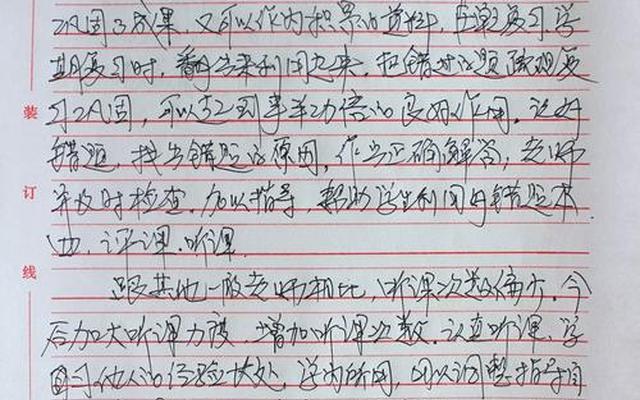 巩固了成果,又可以作为积累的资料,在单元复习、学
期复习时,翻出来利用起来,把错过的题重现复
习巩固,可以起到事半功倍的良好作用。记好
错题,找出错题的原因,作出正确解答,老师
并及时检查,加以指导,帮助学生利用好错题本
四、评课、听课
跟其他一般老师相比,听课次数偏少,今
后加大听课力度,增加听课次数,认真听课,学
习他人的经验长处,学为所用,可以调整指导
装
订
线